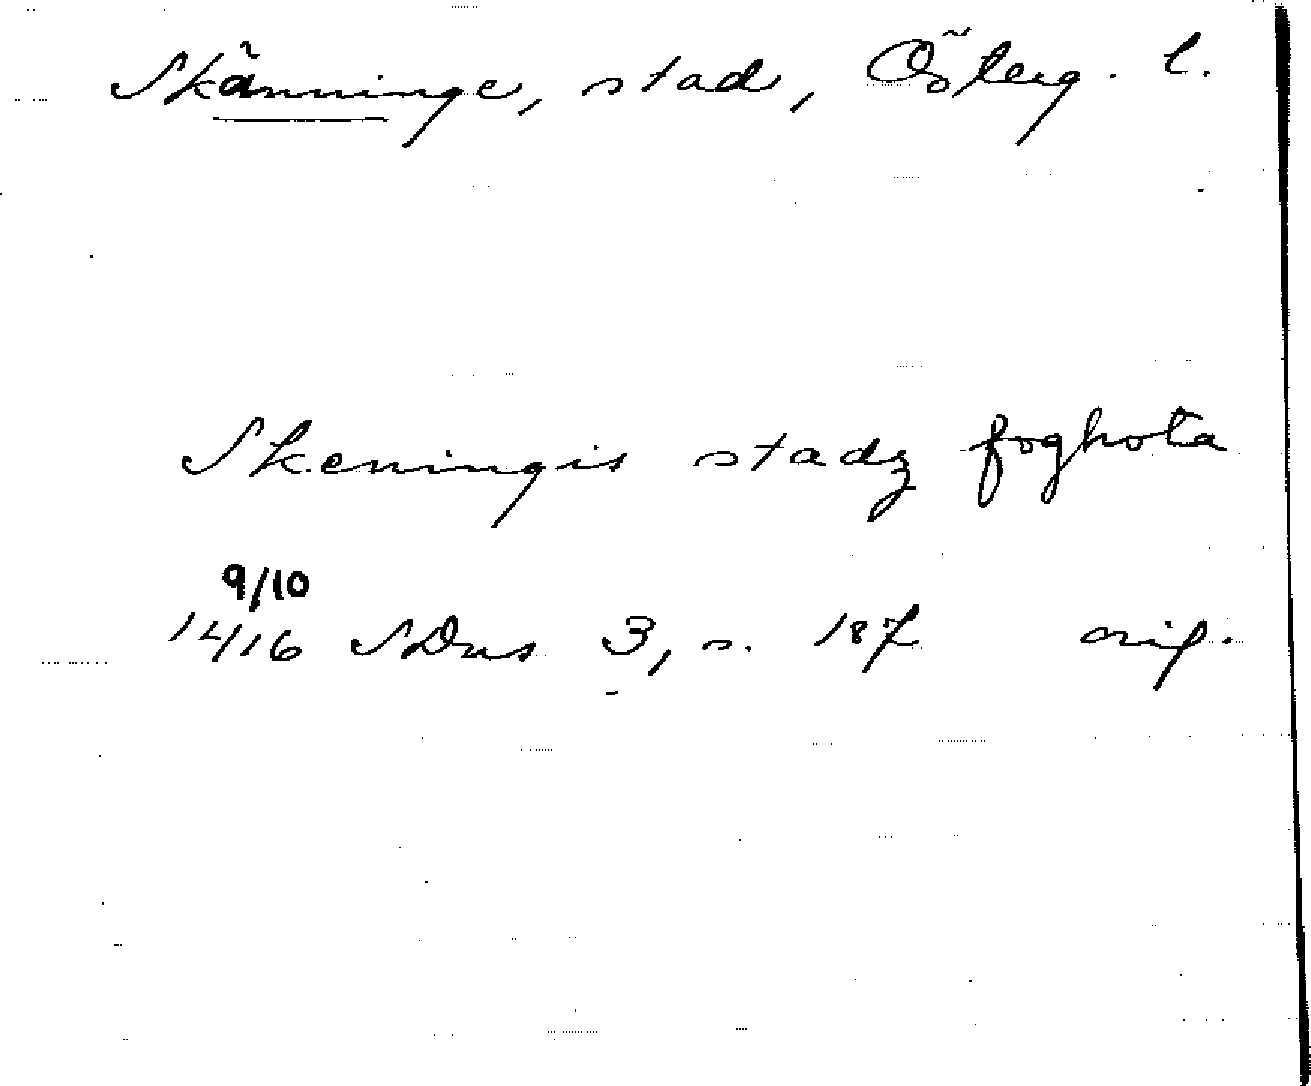 Skänninge, stad, Österg. l.
Skeningis stadz foghota
9/10
1416 SDns 3, s. 187 orig.